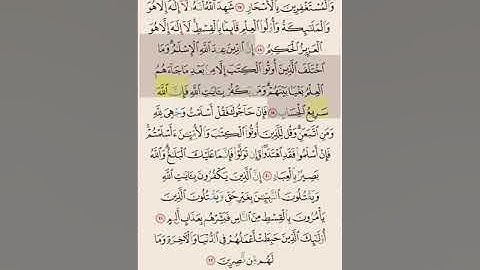 وَالْمُسْتَغْفِرِينَ بِالْأَسْحَارِ ١٧ شَهِدَ اللَّهُ أَنَّهُ لَا إِلَٰهَ إِلَّا هُوَ
وَالْمَلَائِكَةُ وَأُولُو الْعِلْمِ قَائِمًا بِالْقِسْطِ لَا إِلَٰهَ إِلَّا هُوَ
الْعَزِيزُ الْحَكِيمُ ١٨ إِنَّ الدِّينَ عِندَ اللَّهِ الْإِسْلَامُ وَمَا
اخْتَلَفَ الَّذِينَ أُوتُوا الْكِتَابَ إِلَّا مِن بَعْدِ مَا جَاءَهُمُ
الْعِلْمُ بَغْيًا بَيْنَهُمْ وَمَن يَكْفُرْ بِآيَاتِ اللَّهِ فَإِنَّ اللَّهَ
سَرِيعُ الْحِسَابِ ١٩ فَإِنْ حَاجُّوكَ فَقُلْ أَسْلَمْتُ وَجْهِيَ لِلَّهِ
وَمَنِ اتَّبَعَنِ وَقُل لِّلَّذِينَ أُوتُوا الْكِتَابَ وَالْأُمِّيِّينَ أَأَسْلَمْتُمْ
فَإِنْ أَسْلَمُوا فَقَدِ اهْتَدَوا وَّإِن تَوَلَّوْا فَإِنَّمَا عَلَيْكَ الْبَلَاغُ وَاللَّهُ
بَصِيرٌ بِالْعِبَادِ ٢٠ إِنَّ الَّذِينَ يَكْفُرُونَ بِآيَاتِ اللَّهِ
وَيَقْتُلُونَ النَّبِيِّينَ بِغَيْرِ حَقٍّ وَيَقْتُلُونَ الَّذِينَ
يَأْمُرُونَ بِالْقِسْطِ مِنَ النَّاسِ فَبَشِّرْهُم بِعَذَابٍ أَلِيمٍ ٢١
أُولَٰئِكَ الَّذِينَ حَبِطَتْ أَعْمَالُهُمْ فِي الدُّنْيَا وَالْآخِرَةِ وَمَا
لَهُم مِّن نَّاصِرِينَ ٢٢